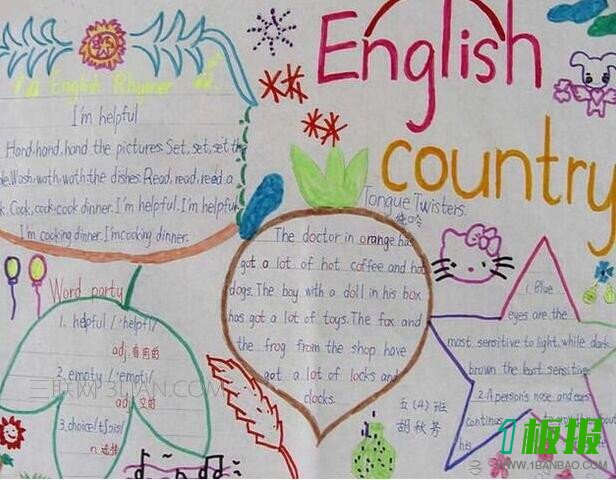 English
country
English Rhymer
I'm helpful
Hand, hand, hand the pictures. Set, set, set the
Wash, wath, wath the dishes. Read, read, reed a
Cook, cook, cook dinner. I'm helpful. I'm helpful
I'm cooking dinner. I'm cooking dinner.
Word party
1. helpful
adj. 有用的
2. empty /'empti/
adj. 空的
3. choice
n. 选择
Tongue Twisters.
The doctor in orange has
got a lot of hot coffee and hot
dogs. The boy with a doll in his box
has got a lot of toys. The fox and
the frog from the shop have
got a lot of locks and
clocks.
五(4)班
胡秋芳
1. Blue
eyes are the
most sensitive to light, while dark
brown the least sensitive
2. A person's nose and ears
continue
his
三联网 3LIAN.COM
1板报
WWW.1BANBAO.COM